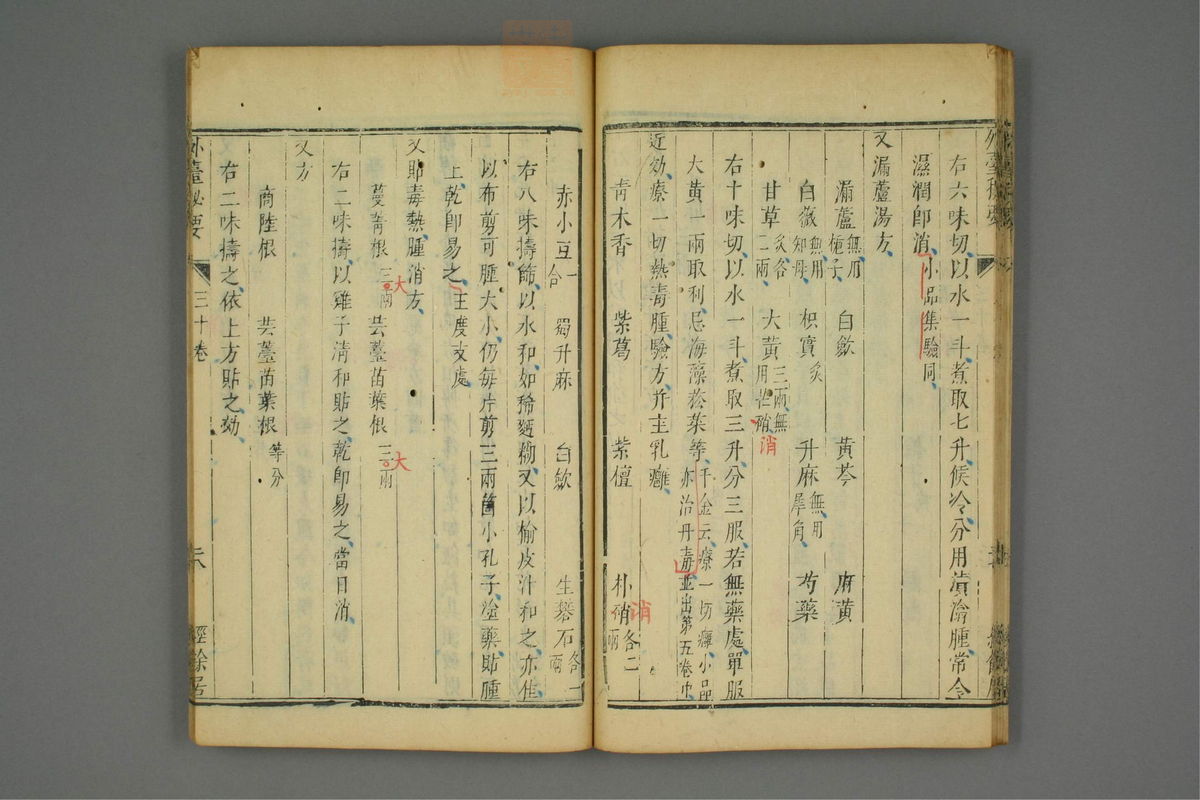 右六味切以水一斗煮取七升候冷分用漬渝腫常令
濕潤即消小品集驗同
又漏蘆湯方
漏蘆無用梔子 白歛 黃芩 麻黃
白薇無用知母 枳實炙 升麻無用犀角 芍藥
甘草炙各二兩 大黃三兩無用芒硝 消
右十味切以水一斗煮取三升分三服若無藥處單服
大黃一兩取利忌海藻菘菜等千金云療一切癰小品亦治丹毒並出第五卷中
近効療一切熱毒腫驗方并主乳癰
青木香 紫葛 紫檀 朴硝各二兩 消
赤小豆一合 蜀升麻 白歛 生礬石各一兩
右八味擣篩以水和如稀麵糊又以榆皮汁和之亦佳
以布剪可腫大小仍每片剪三兩箇小孔子塗藥貼腫
上乾即易之王度支處
又貼毒熱腫消方
蔓菁根三兩 大 芸薹苗葉根三兩 大
右二味擣以雞子清和貼之乾即易之當日消
又方
商陸根 芸薹苗葉根等分
右二味擣之依上方貼之効
外臺秘要 三十卷 經餘居